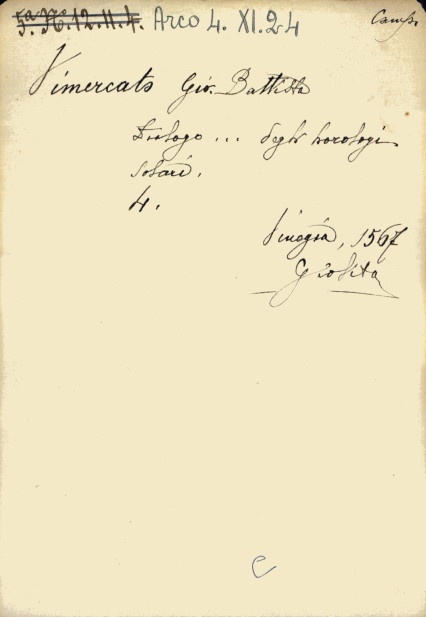 5ª N. 12. 11. 4. Arco 4. XI. 24
Camp.
Vimercato Gio. Battista
Dialogo ... degli horologi
solari.
4.
Vinegia, 1567
Giolito
C